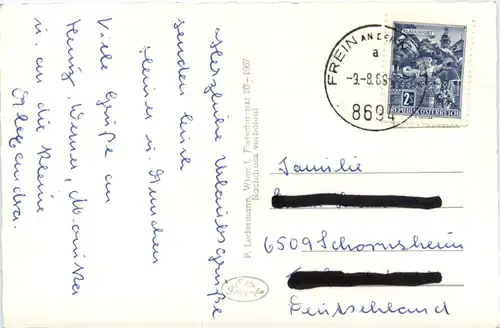 Herzliche Urlaubsgrüße
senden Euch
Heiner u. Hannchen
Viele Grüße an
Heinz Werner, Monika
u. an die kleine
Alexandra.
P. Ledermann, Wien I, Fleischmarkt 20 – 1967
Nachdruck verboten!
FREIN AN DER
a
-9.-8.68
8694
KLAGENFURT
2S
REPUBLIK ÖSTERREICH
Familie
6509 Schornsheim
Deutschland